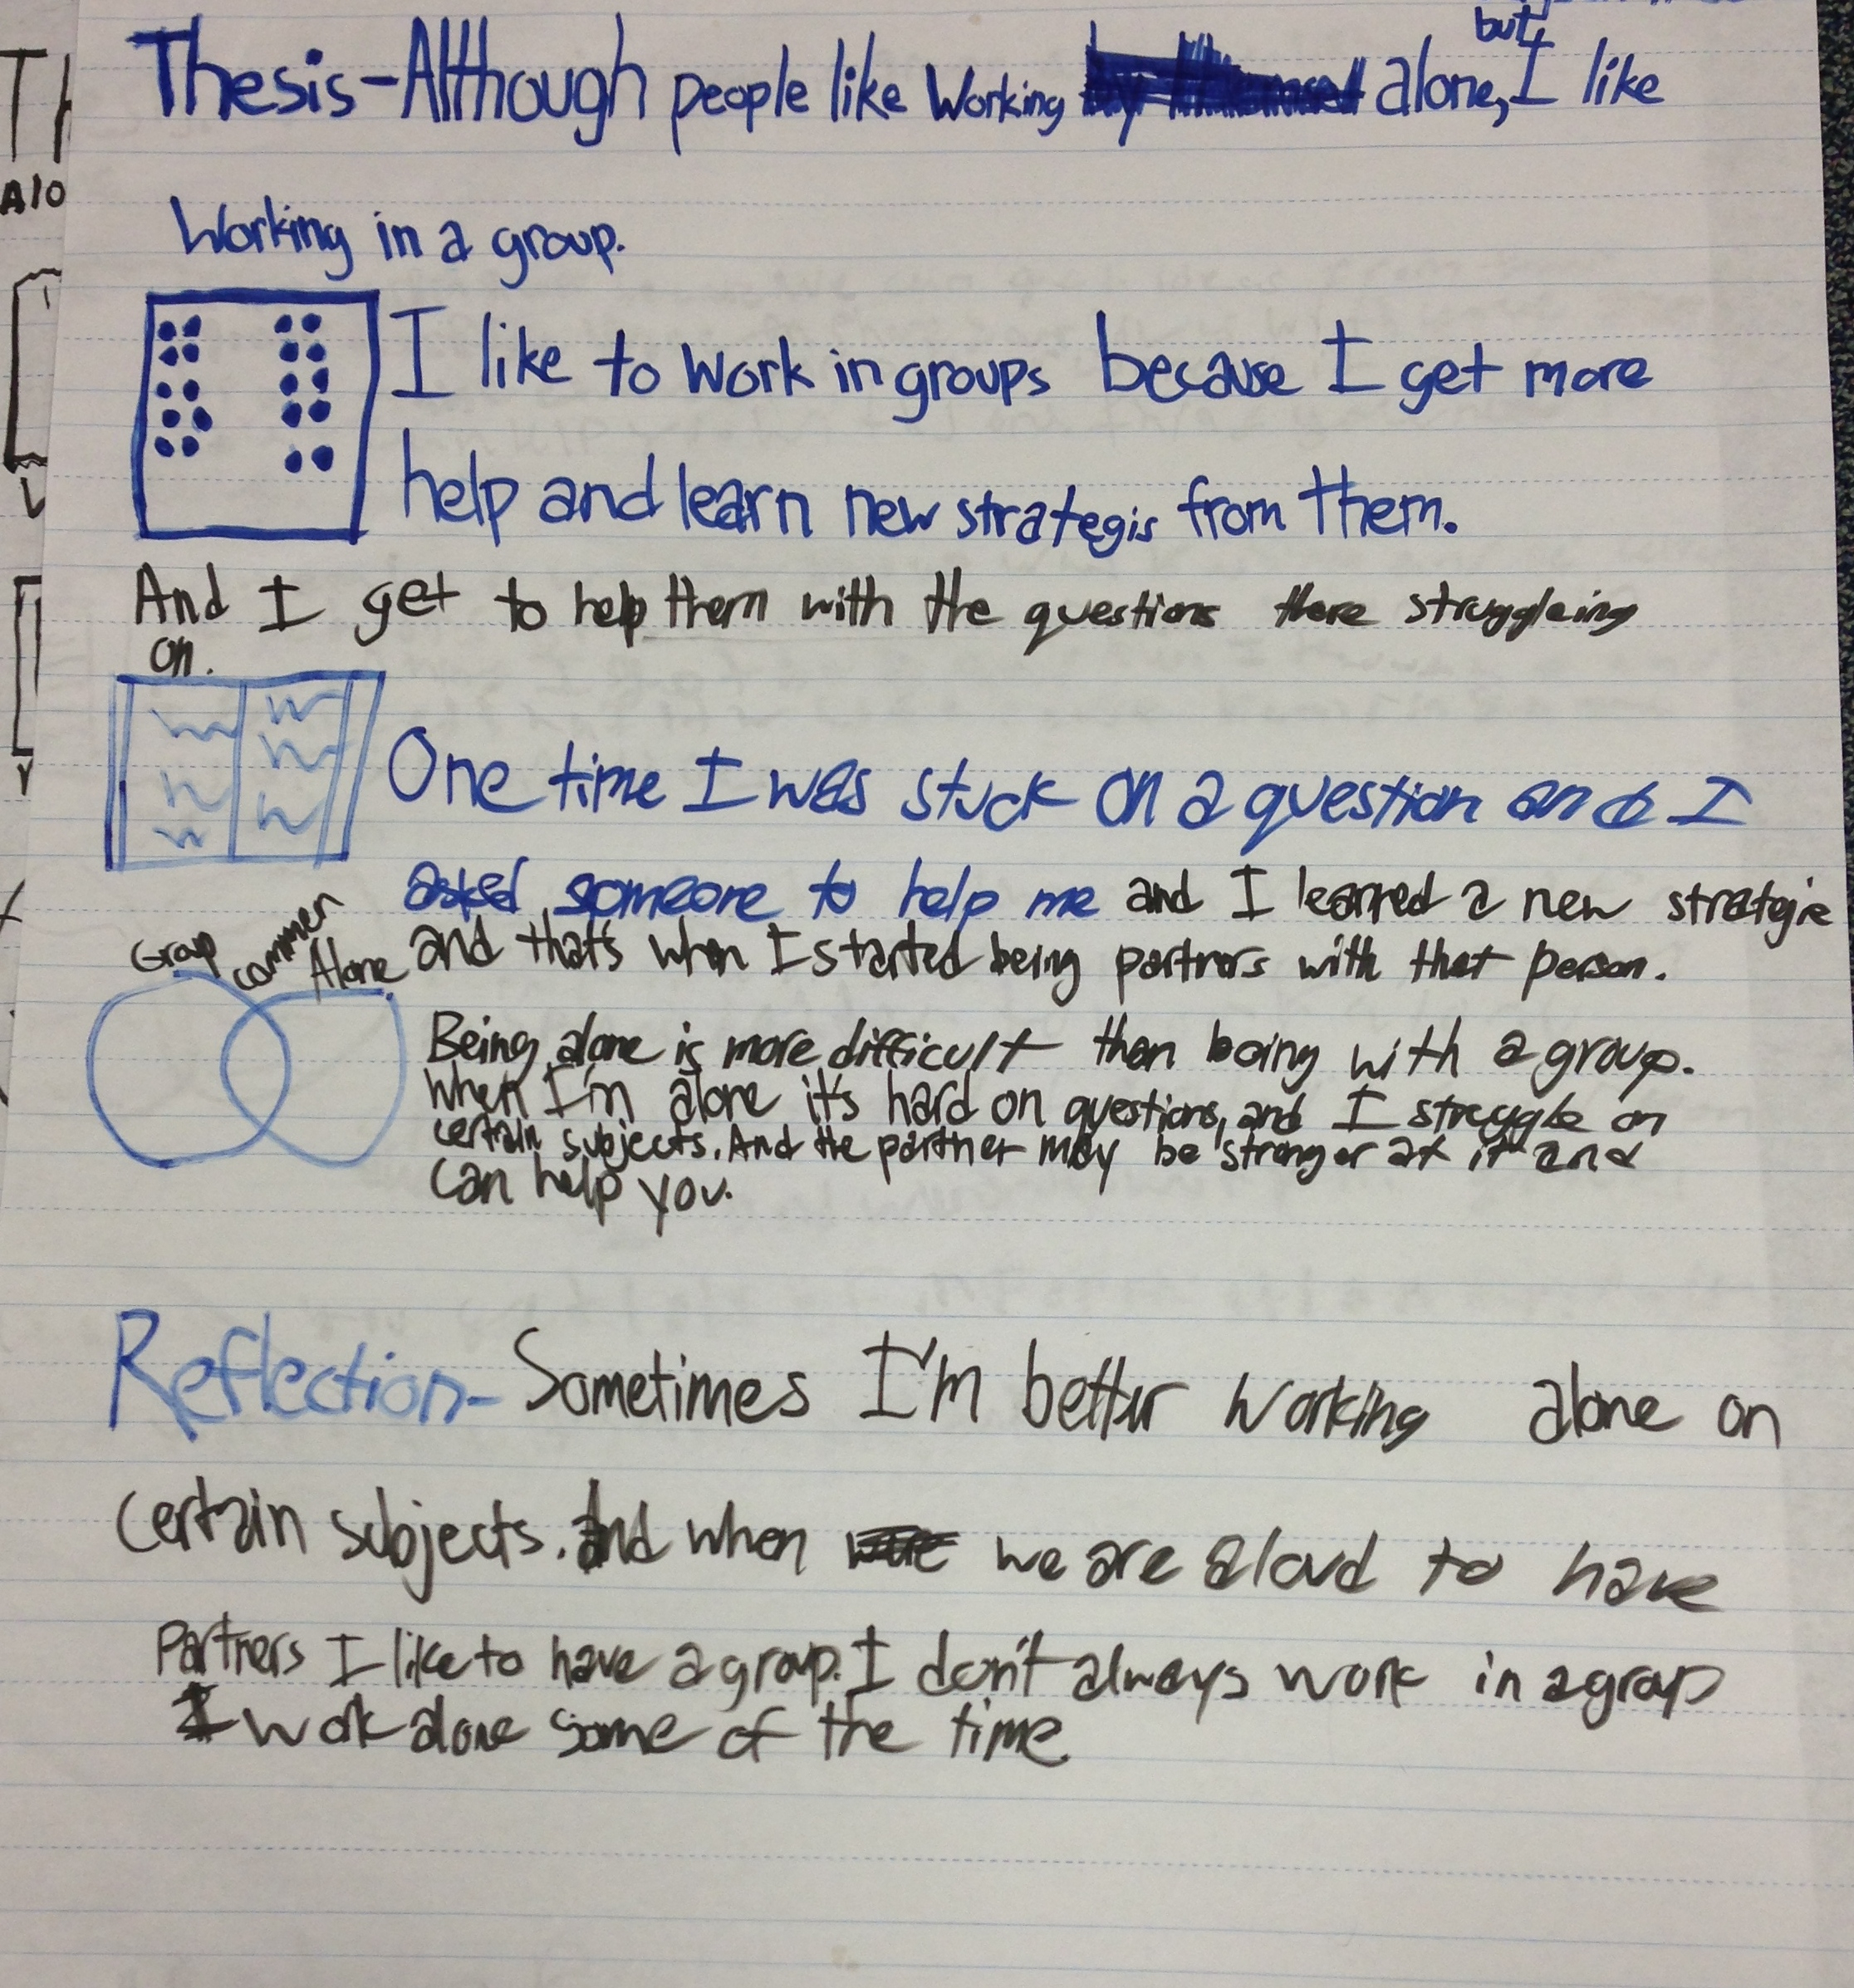 but,
Thesis-Although people like Working alone, I like
Working in a group.
I like to work in groups because I get more
help and learn new strategis from them.
And I get to help them with the questions there struggleing
on.
One time I was stuck on a question and I
asked someone to help me and I learned a new strategie
and that's when I started being partners with that person.
Group
commen
Alone
Being alone is more difficult than being with a group.
When I'm alone it's hard on questions, and I struggle on
certain subjects. And the partner may be stronger at it and
can help you.
Reflection- Sometimes I'm better working alone on
certain subjects. And when we are aloud to have
Partners I like to have a group. I don't always work in a group
I work alone some of the time.
Th
Alo